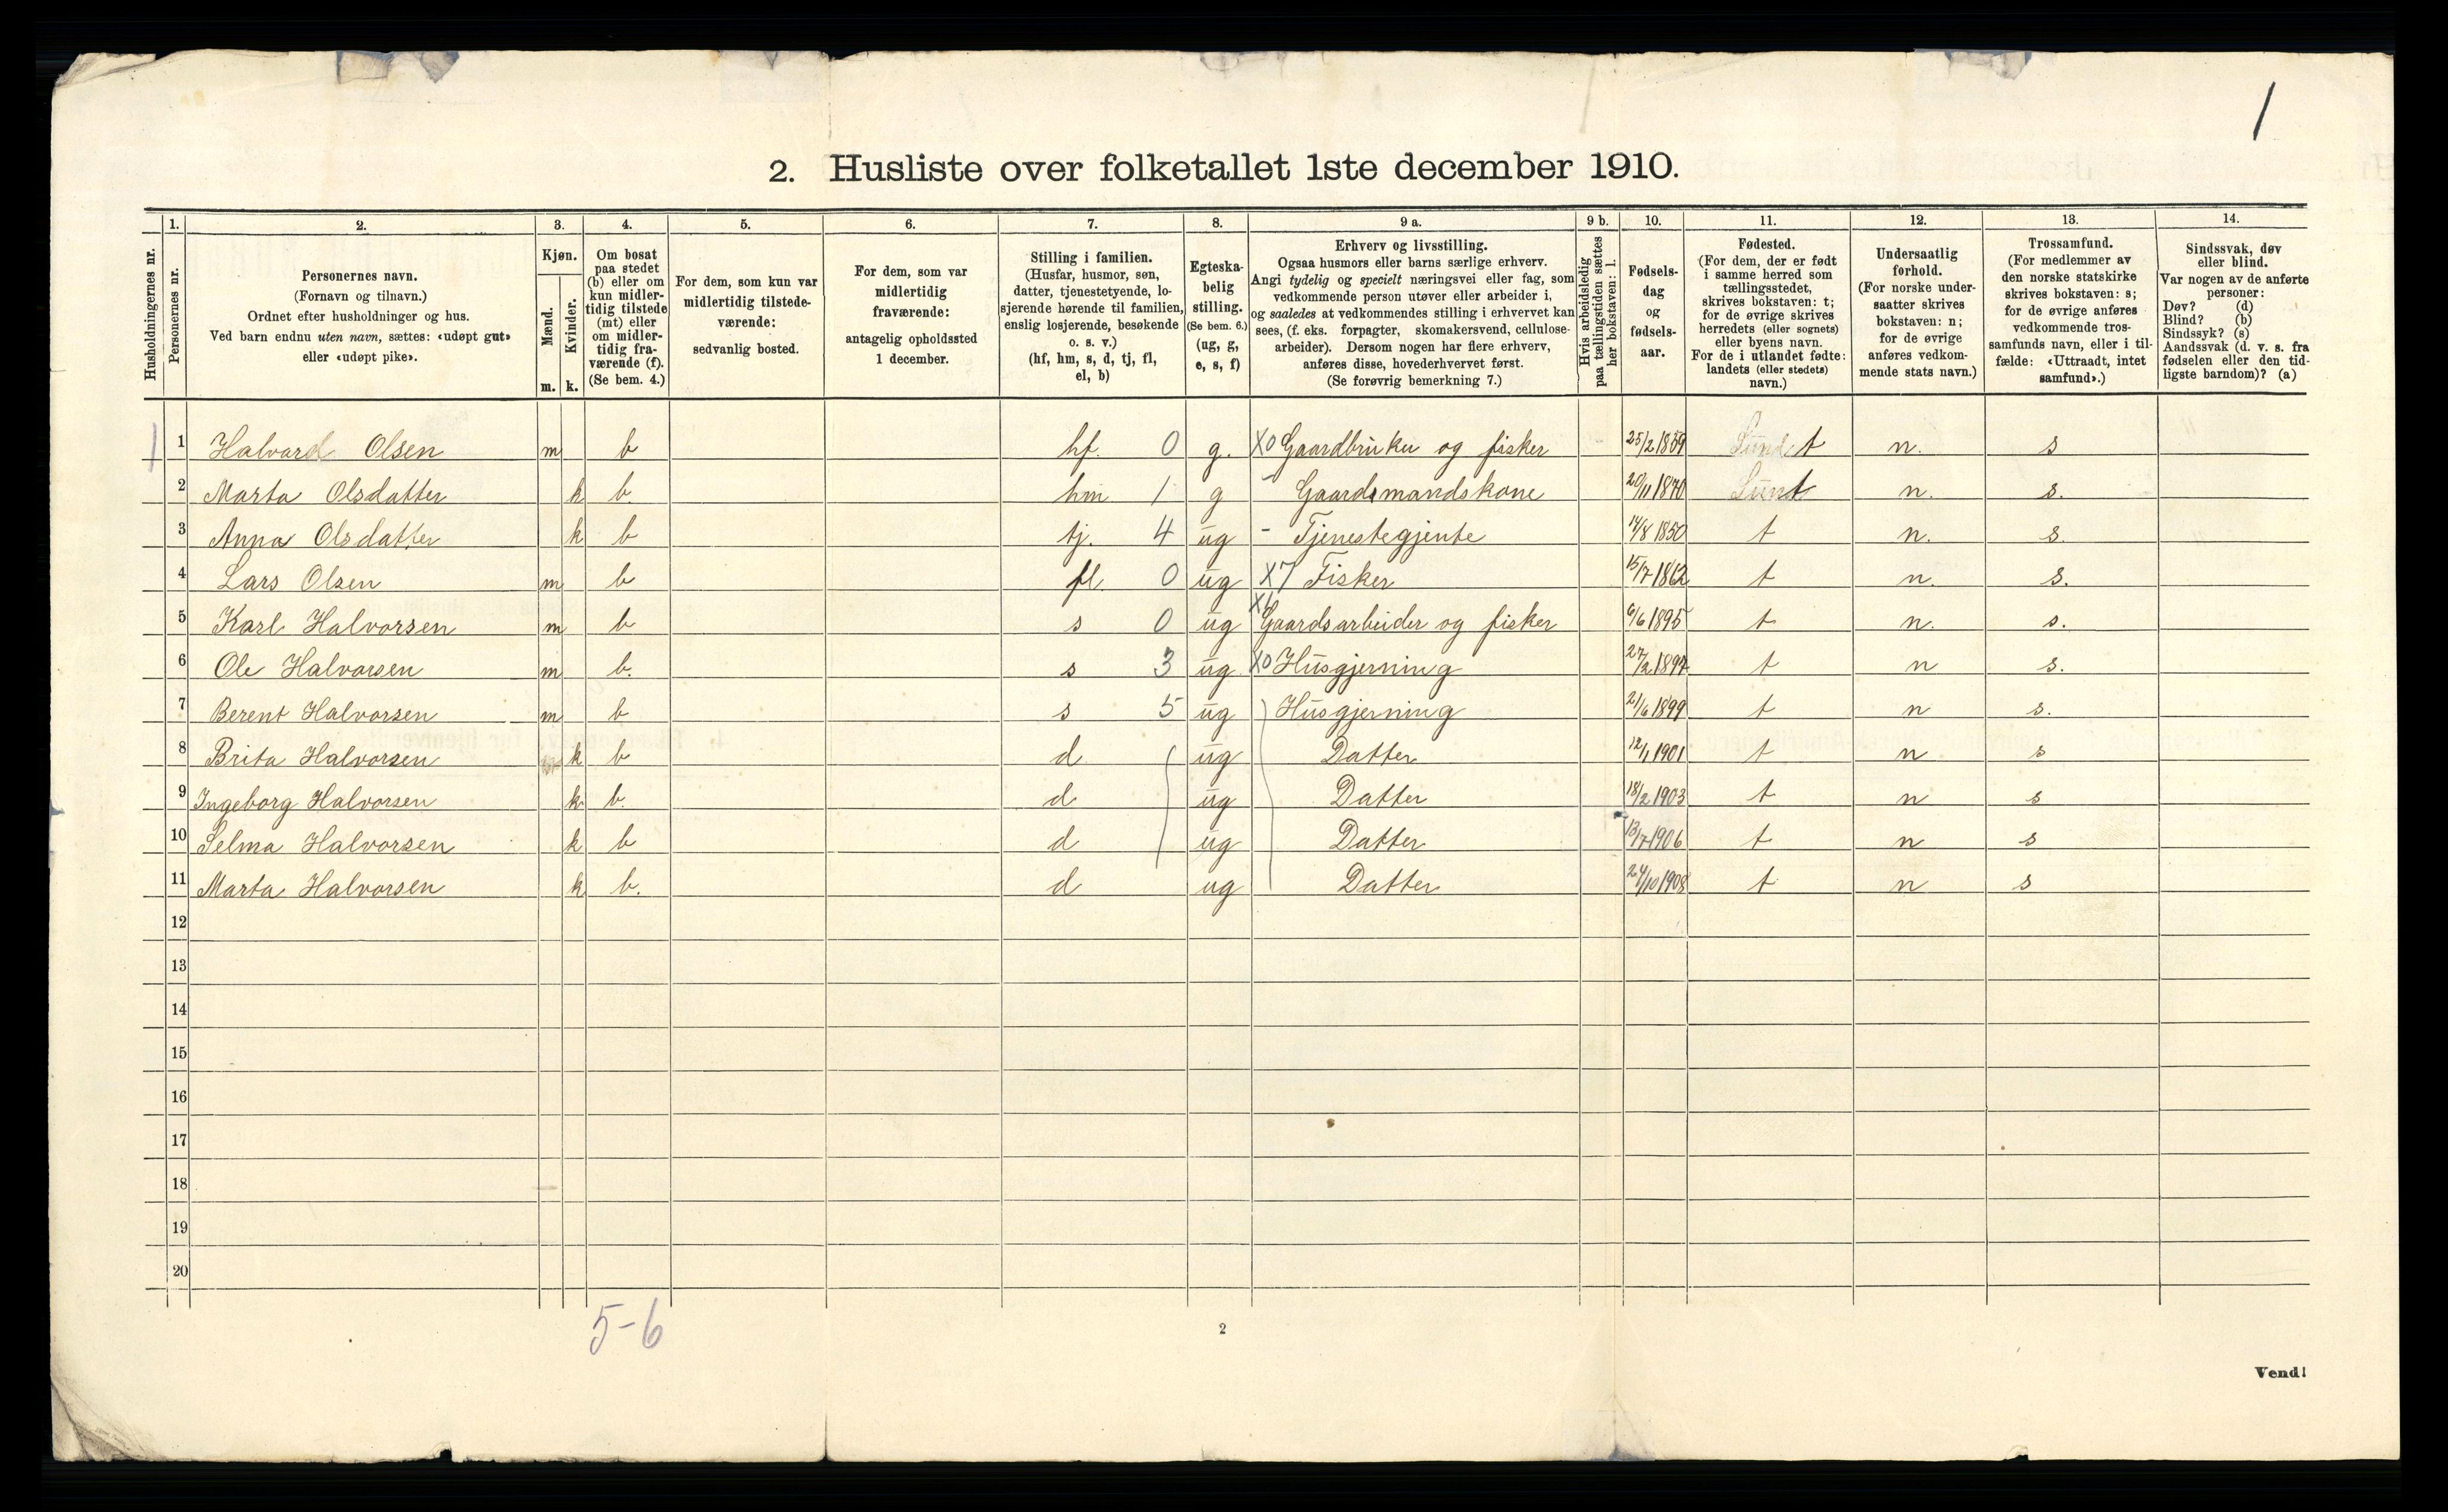 1
2. Husliste over folketallet 1ste december 1910.
Husholdningernes nr.
1. Personernes nr.
2.
Personernes navn.
(Fornavn og tilnavn.)
Ordnet efter husholdninger og hus.
Ved barn endnu uten navn, sættes: «udøpt gut»
eller «udøpt pike».
3.
Kjøn.
Mænd. Kvinder.
m. k.
4.
Om bosat
paa stedet
(b) eller om
kun midler-
tidig tilstede
(mt) eller
om midler-
tidig fra-
værende (f).
(Se bem. 4.)
5.
For dem, som kun var
midlertidig tilstede-
værende:
sedvanlig bosted.
6.
For dem, som var
midlertidig
fraværende:
antagelig opholdssted
1 december.
7.
Stilling i familien.
(Husfar, husmor, søn,
datter, tjenestetyende, lo-
sjerende hørende til familien,
enslig losjerende, besøkende
o. s. v.)
(hf, hm, s, d, tj, fl,
el, b)
8.
Egteska-
belig
stilling.
(Se bem. 6.)
(ug, g,
e, s, f)
9 a.
Erhverv og livsstilling.
Ogsaa husmors eller barns særlige erhverv.
Angi tydelig og specielt næringsvei eller fag, som
vedkommende person utøver eller arbeider i,
og saaledes at vedkommendes stilling i erhvervet kan
sees, (f. eks. forpagter, skomakersvend, cellulose-
arbeider). Dersom nogen har flere erhverv,
anføres disse, hovederhvervet først.
(Se forøvrig bemerkning 7.)
9 b.
Hvis arbeidsledig
paa tællingstiden sættes
her bokstaven: l.
10.
Fødsels-
dag
og
fødsels-
aar.
11.
Fødested.
(For dem, der er født
i samme herred som
tællingsstedet,
skrives bokstaven: t;
for de øvrige skrives
herredets (eller sognets)
eller byens navn.
For de i utlandet fødte:
landets (eller stedets)
navn.)
12.
Undersaatlig
forhold.
(For norske under-
saatter skrives
bokstaven: n;
for de øvrige
anføres vedkom-
mende stats navn.)
13.
Trossamfund.
(For medlemmer av
den norske statskirke
skrives bokstaven: s;
for de øvrige anføres
vedkommende tros-
samfunds navn, eller i til-
fælde: «Uttraadt, intet
samfund».)
14.
Sindssvak, døv
eller blind.
Var nogen av de anførte
personer:
Døv? (d)
Blind? (b)
Sindssyk? (s)
Aandssvak (d. v. s. fra
fødselen eller den tid-
ligste barndom)? (a)
1 1 Halvard Olsen m b hf. 0 g. X0 Gaardbruker og fisker 25/2 1859 t n. s
2 Marta Olsdatter k b hm 1 g - Gaardsmandskone 20/11 1870 t n. s.
3 Anna Olsdatter k b tj. 4 ug - Tjenestegjente 14/8 1850 t n. s.
4 Lars Olsen m b fl. 0 ug X7 Fisker 15/7 1862 t n. s.
5 Karl Halvorsen m b s 0 ug Gaardsarbeider og fisker 6/6 1895 t n. s.
6 Ole Halvorsen m b. s 3 ug X0 Husgjerning 27/2 1897 t n s.
7 Berent Halvorsen m b s 5 ug Husgjerning 21/6 1899 t n s.
8 Brita Halvorsen k b d ug Datter 12/1 1901 t n s
9 Ingeborg Halvorsen k b. d ug Datter 18/2 1903 t n s
10 Selma Halvorsen k b d ug Datter 13/7 1906 t n s
11 Marta Halvorsen k b. d ug Datter 24/10 1908 t n s
12
13
14
15
16
17
18
19
20
5-6
2
Vend!